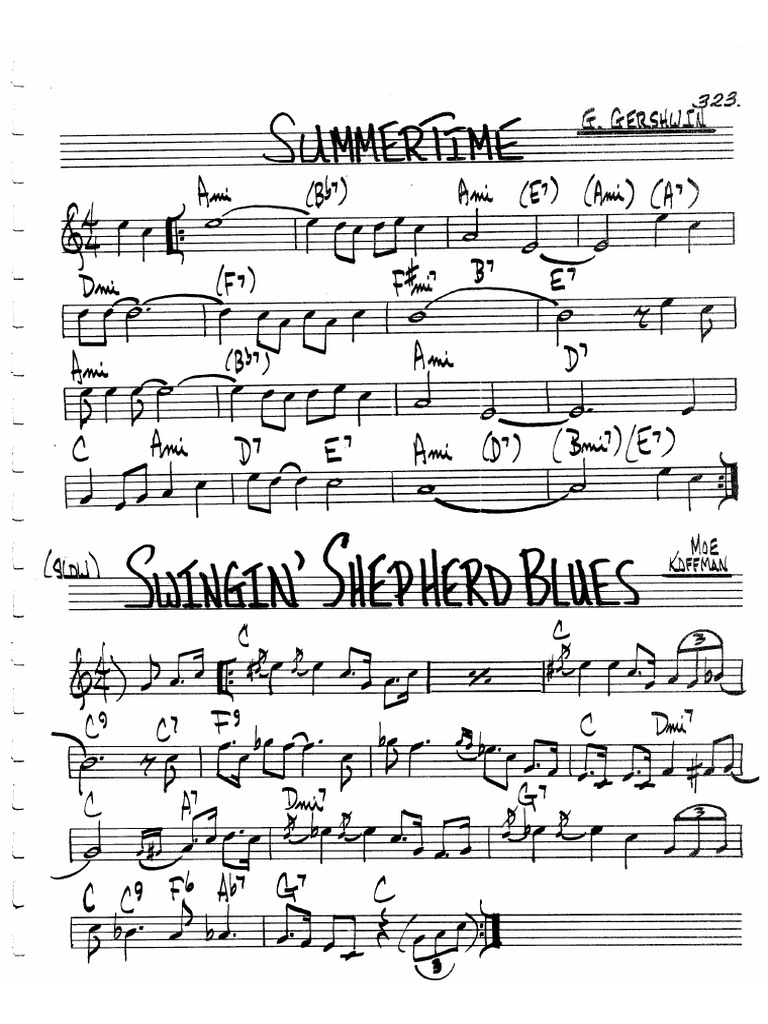 323.
SUMMERTIME G. GERSHWIN
Ami (Bb7) Ami (E7) (Ami) (A7)
4/4
Dmi (F7) F#mi7 B7 E7
Ami (Bb7) Ami D7
C Ami D7 E7 Ami (D7) (Bmi7) (E7)
(SLOW) SWINGIN' SHEPHERD BLUES MOE KOFFMAN
C C
4/4 3
C9 C7 F9 C Dmi7
C A7 Dmi7 G7
3
C C9 F6 Ab7 G7 C
3